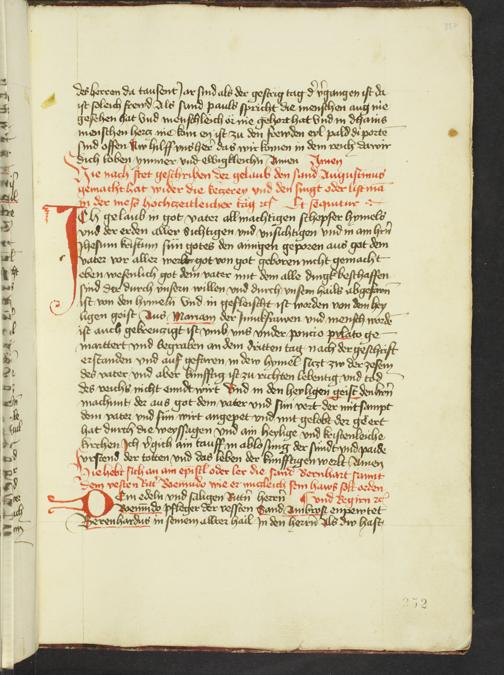 des herren da tausent Jar sind als der gestrig tag d' v'gangen ist da
ist soleich frewd Als sand pauls spricht die menschen aug nie
gesehen hat vnd menschleich or nie gehort hat vnd in chains
menschen hercz nie kom en ist zu den frewden erl pald di porte
sind offen Nw hilff vns her das wir komen in dem reich dar wir
dich loben ymmer vnd ewigkleichn Amen Amen
Hie nach stet geschriben der gelaub den sand Augustinus
gemacht hat wider die keczerey vnd den singt oder list man
in der mess hochzeitleicher tag etc Et sequitur
Ich gelaub in got vater allmächtigen schepfer hymels
vnd der erden aller sichtigen vnd vnsichtigen vnd in am hern
Jhesum kristum sun gotes den ainigen geporen aus got dem
vater vor aller werlt got von got geboren nicht gemacht
eben wesenlich got dem vater mit dem alle dingk beschaffen
sind der durch vnsern willen vnd durch vnsern hails abgefarn
ist von den hymeln vnd in gefleischt ist worden von dem hey
ligen geist Aus Mariam der Junckfrawen vnd mensch worde
ist auch gekreuczigt ist vmb vns vnder poncio pylato ge
martert vnd begraben an dem dritten tag nach der geschrift
erstanden vnd auf gefaren in dem hymel siczt zu der zesem
des vater vnd aber künfftig ist zu richten lebentig vnd tod
des reichs nicht ennd wirt Vnd in den heyligen geist den herrn
machund der aus got dem vater vnd sun vert der mitsampt
dem vater vnd sun wirt angepet vnd mit gelobt der geert
hat durch die weyssagen vnd ain heylige vnd kristenleiche
kirchen Ich v'gich ain tauff in ablosung der sündt vnd paide
vrstend der totten vnd das leben der künfftigen werlt Amen
Hie hebt sich an am epistl oder ler die sant Bernhart sannt
dem vesten Ritt' Boemundo wie er mugleich sein haws solt orden
Dem edeln vnd saligen Rittn herrn vnd Regirn etc
Boemundo pfleger der vessten Sand Ambrosi enpewtet
Berenhardus in seinem allter hail in den herrn Als dw hast
252